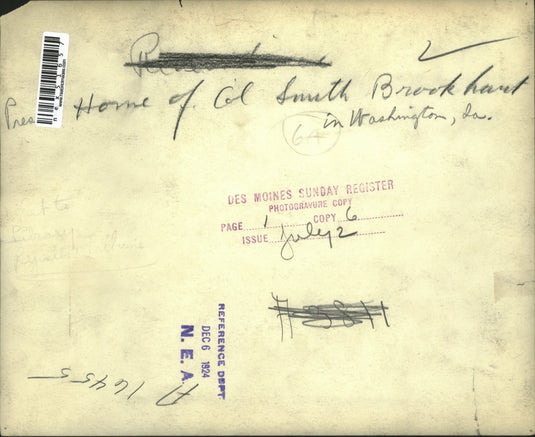 Home of Col Smith Brookhart
in Washington, Ia.
64
DES MOINES SUNDAY REGISTER
PHOTOGRAVURE COPY
PAGE 1 COPY 6
ISSUE July 2
REFERENCE DEPT
DEC 6 1924
N. E. A.
A 16455